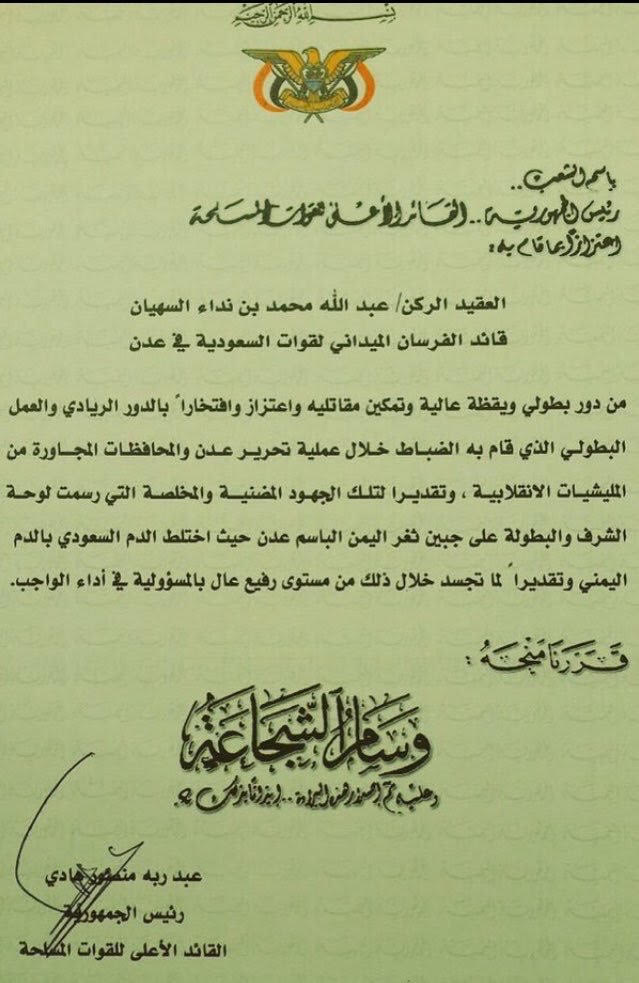 بسم الله الرحمن الرحيم
باسم الشعب..
رئيس الجمهورية.. القائد الأعلى للقوات المسلحة
اعتزازاً بما قام به :
العقيد الركن/ عبد الله محمد بن نداء السهيان
قائد الفرسان الميداني لقوات السعودية في عدن
من دور بطولي ويقظة عالية وتمكين مقاتليه واعتزاز وافتخاراً بالدور الريادي والعمل
البطولي الذي قام به الضباط خلال عملية تحرير عدن والمحافظات المجاورة من
المليشيات الانقلابية ، وتقديرا لتلك الجهود المضنية والمخلصة التي رسمت لوحة
الشرف والبطولة على جبين ثغر اليمن الباسم عدن حيث اختلط الدم السعودي بالدم
اليمني وتقديراً لما تجسد خلال ذلك من مستوى رفيع عال بالمسؤولية في أداء الواجب.
قَرَّرْنَا مَنْحَهُ :
وِسَامُ الشَّجَاعَةِ
وعليه تم إصدار هذه البراءة.. إيذاناً بذلك
عبد ربه منصور هادي
رئيس الجمهورية
القائد الأعلى للقوات المسلحة